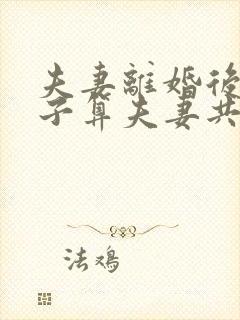 夫妻離婚後
子算夫妻共
法鴻